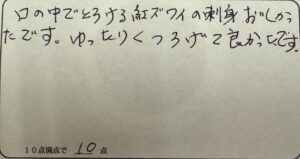 口の中でとろける紅ズワイの刺身おいしかっ
たです。ゆったりくつろげて良かったです。
10点満点で 10 点